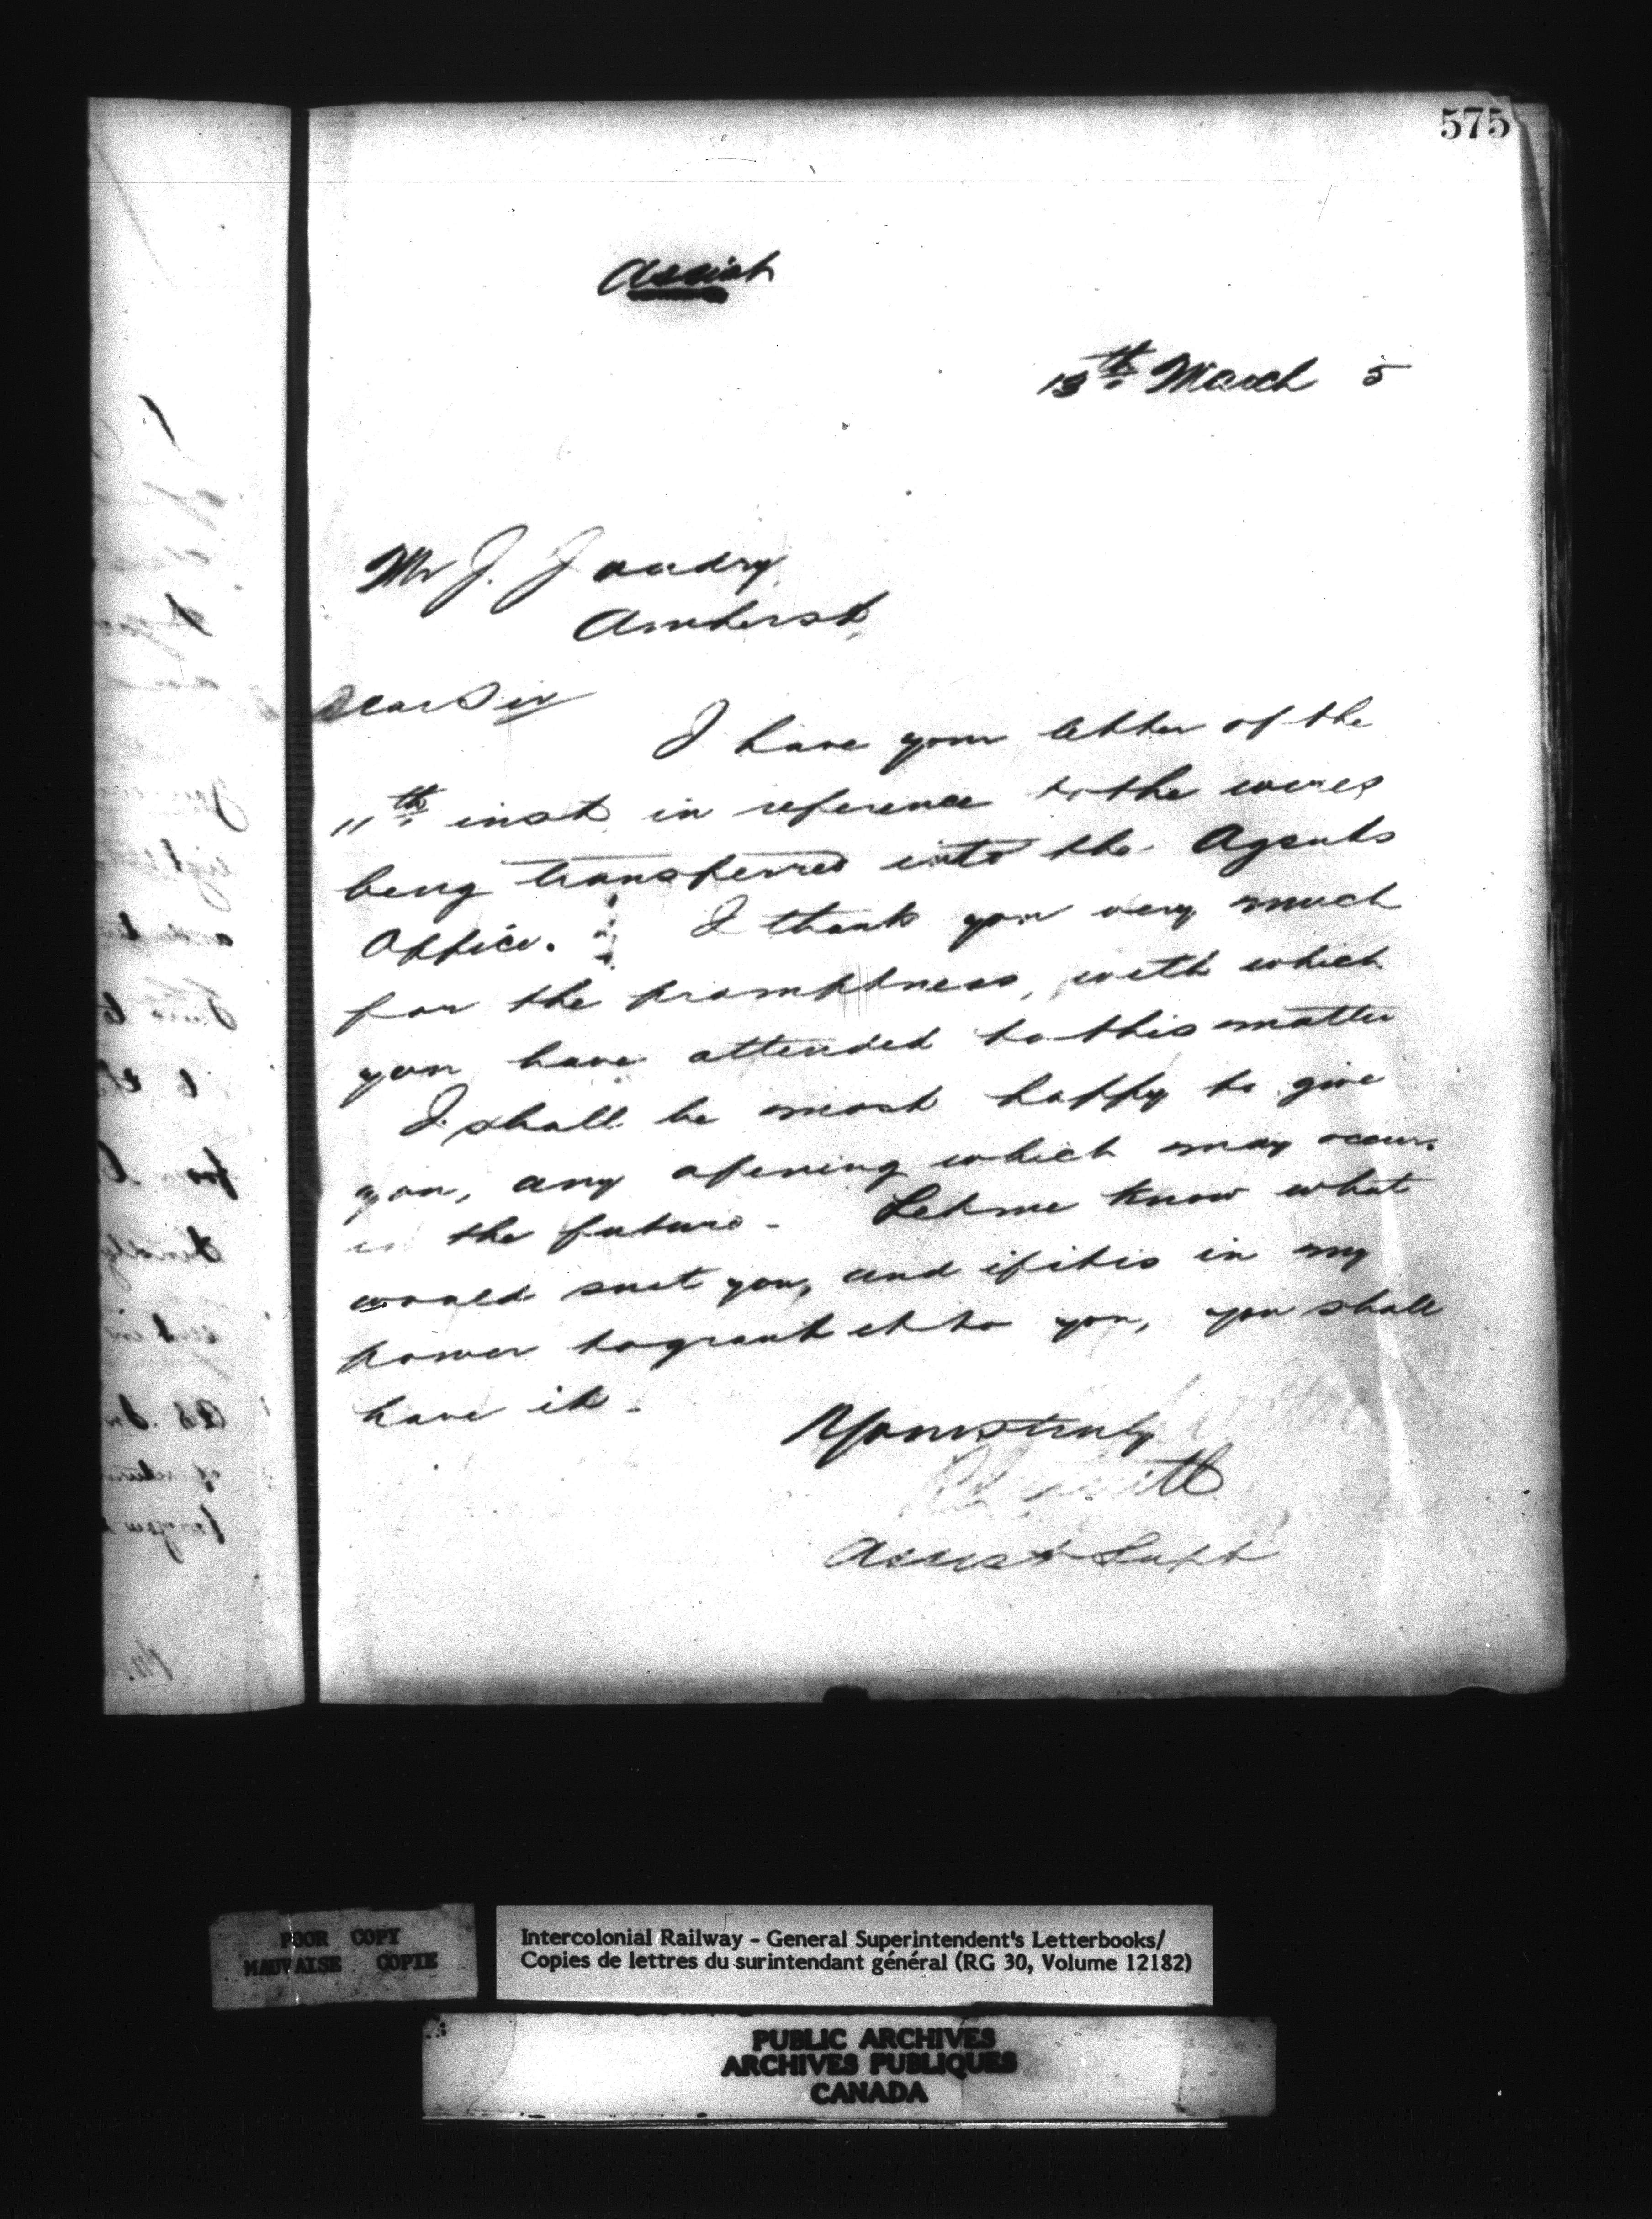 575
Assist
13th March 5
Mr J.
Amherst,
Dear Sir
I have your letter of the
11th inst in reference to the wires
being transferred into the Agents
Office. I thank you very much
for the promptness, with which
you have attended to this matter
I shall be most happy to give
you, any opening which may occur
in the future - Let me know what
would suit you, and if it is in my
power to grant it to you, you shall
have it -
Yours truly
Assist Supt
POOR COPY
MAUVAISE COPIE
Intercolonial Railway - General Superintendent's Letterbooks/
Copies de lettres du surintendant général (RG 30, Volume 12182)
PUBLIC ARCHIVES
ARCHIVES PUBLIQUES
CANADA